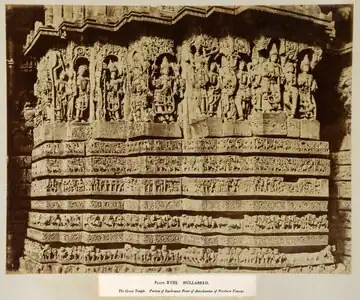 PLATE XVIII. HULLABEED.
The Great Temple. Portion of South-east Front of Muncharuba of Northern Vimana.